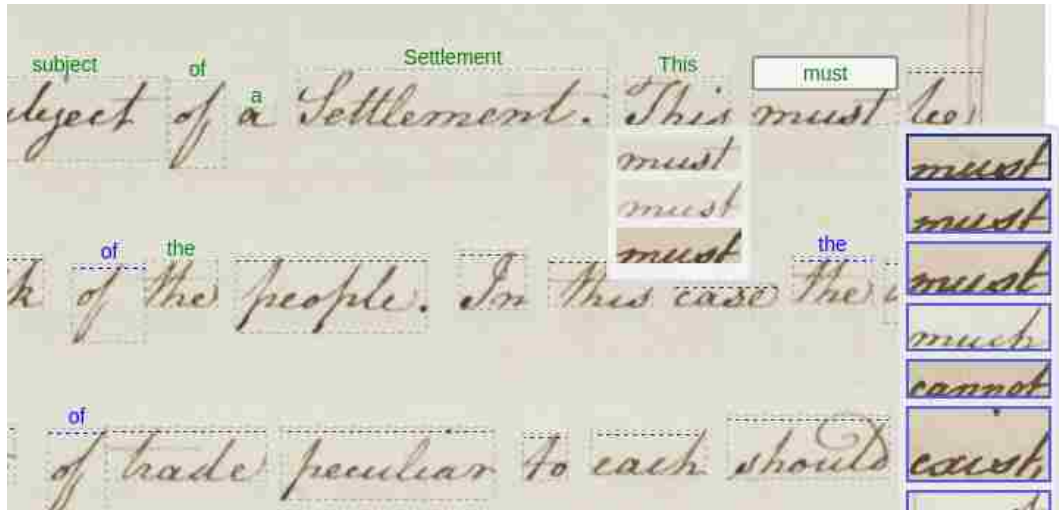 subject of a Settlement This must
ubject of a Settlement. This must be
must
must
must
of the the
k of the people. In this case the
of
of trade peculiar to each should
must
must
must
much
cannot